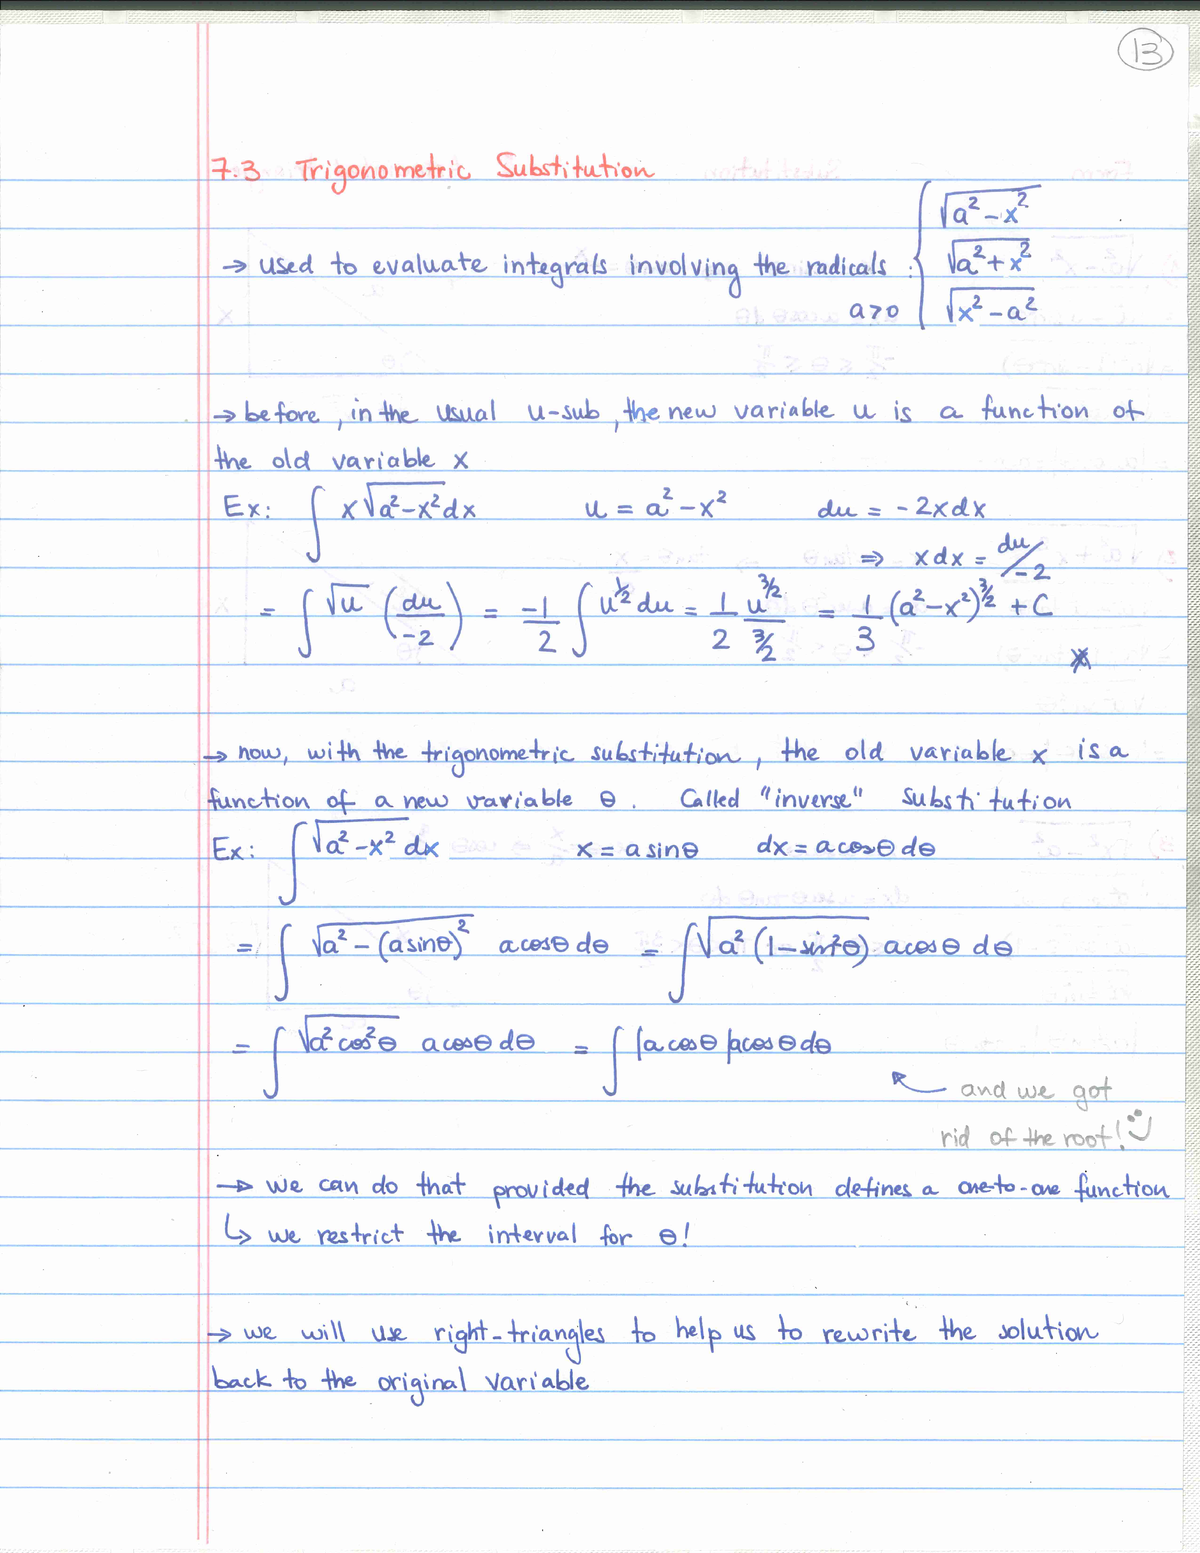 13
7.3 Trigonometric Substitution
→ used to evaluate integrals involving the radicals : { √(a² - x²)
√(a² + x²)
a > 0 √(x² - a²)
→ before, in the usual u-sub, the new variable u is a function of
the old variable x
Ex: ∫ x√(a²-x²) dx u = a² - x² du = -2x dx
⇒ x dx = du/-2
= ∫ √u (du/-2) = -1/2 ∫ u^(1/2) du = 1/2 u^(3/2)/(3/2) = 1/3 (a²-x²)^(3/2) + C
→ now, with the trigonometric substitution, the old variable x is a
function of a new variable θ. Called "inverse" substitution
Ex: ∫ √(a²-x²) dx x = a sinθ dx = a cosθ dθ
= ∫ √(a² - (a sinθ)²) a cosθ dθ = ∫ √(a² (1 - sin²θ)) a cosθ dθ
= ∫ √(a² cos²θ) a cosθ dθ = ∫ |a cosθ| a cosθ dθ
and we got
rid of the root!
→ we can do that provided the substitution defines a one-to-one function
↳ we restrict the interval for θ!
→ we will use right-triangles to help us to rewrite the solution
back to the original variable